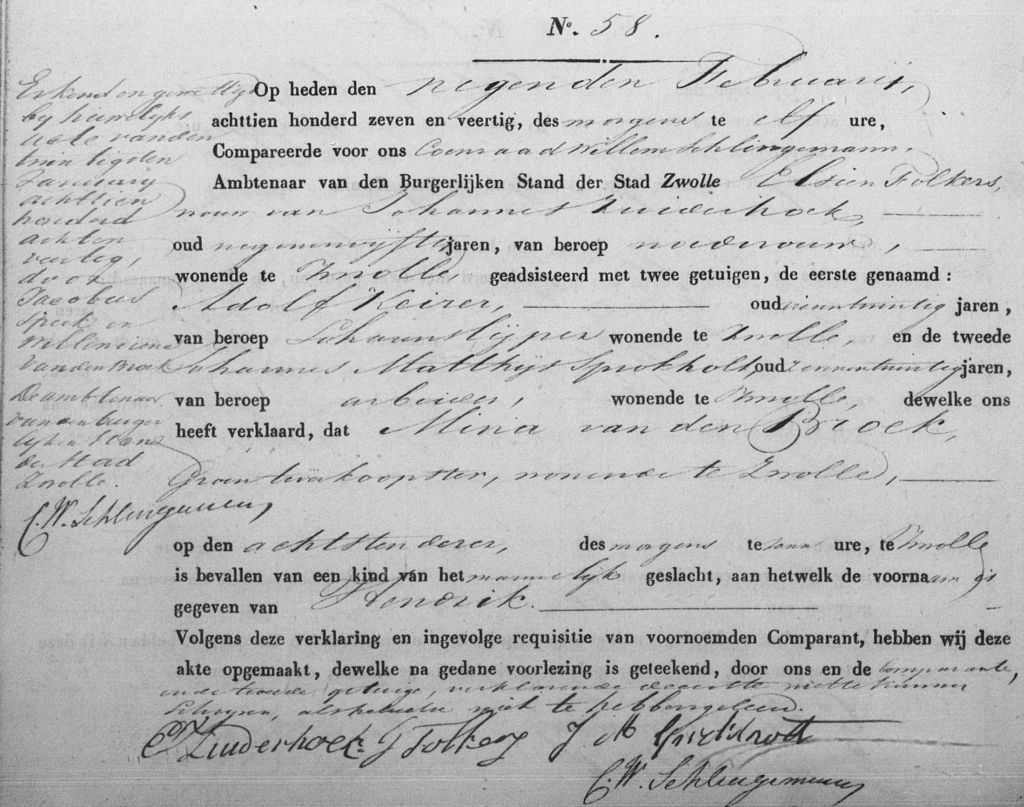 No. 58.
Op heden den negenden Februarij,
achttien honderd zeven en veertig, des morgens te elf ure,
Compareerde voor ons Coenraad Willem Schlingemann,
Ambtenaar van den Burgerlijken Stand der Stad Zwolle Elsien Folkers,
vrouw van Johannes Zuiderhoek,
oud jaren, van beroep vroedvrouw,
wonende te Zwolle, geadsisteerd met twee getuigen, de eerste genaamd:
Adolf Keizer, oud jaren,
van beroep Schoenslijper wonende te Zwolle, en de tweede
Johannes Matthijs Sprokholt, oud jaren,
van beroep arbeider, wonende te Zwolle, dewelke ons
heeft verklaard, dat Mina van den Broek,
Groenverkoopster, wonende te Zwolle,
op den achtsten dezer, des morgens te ure, te Zwolle
is bevallen van een kind van het mannelijk geslacht, aan hetwelk de voornaam is
gegeven van Hendrik.
Volgens deze verklaring en ingevolge requisitie van voornoemden Comparant, hebben wij deze
akte opgemaakt, dewelke na gedane voorlezing is geteekend, door ons en de Comparante,
en de tweede getuige, verklarende de eerste niet te kunnen
schrijven, als hetzelve niet te hebben geleerd.
Zuiderhoek G Folkers J M
C. W. Schlingemann
Erkend en gewettigd
bij huwelijks
acte van den
twintigsten
Januarij
achttien
honderd
acht en
veertig,
door
Jacobus
Speek en
van den Broek
De ambtenaar
van den burger
lijken Stand
der Stad
Zwolle.
C. W. Schlingemann